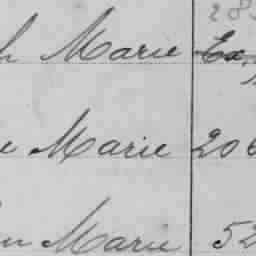 h Marie
e Marie 206
n Marie 52